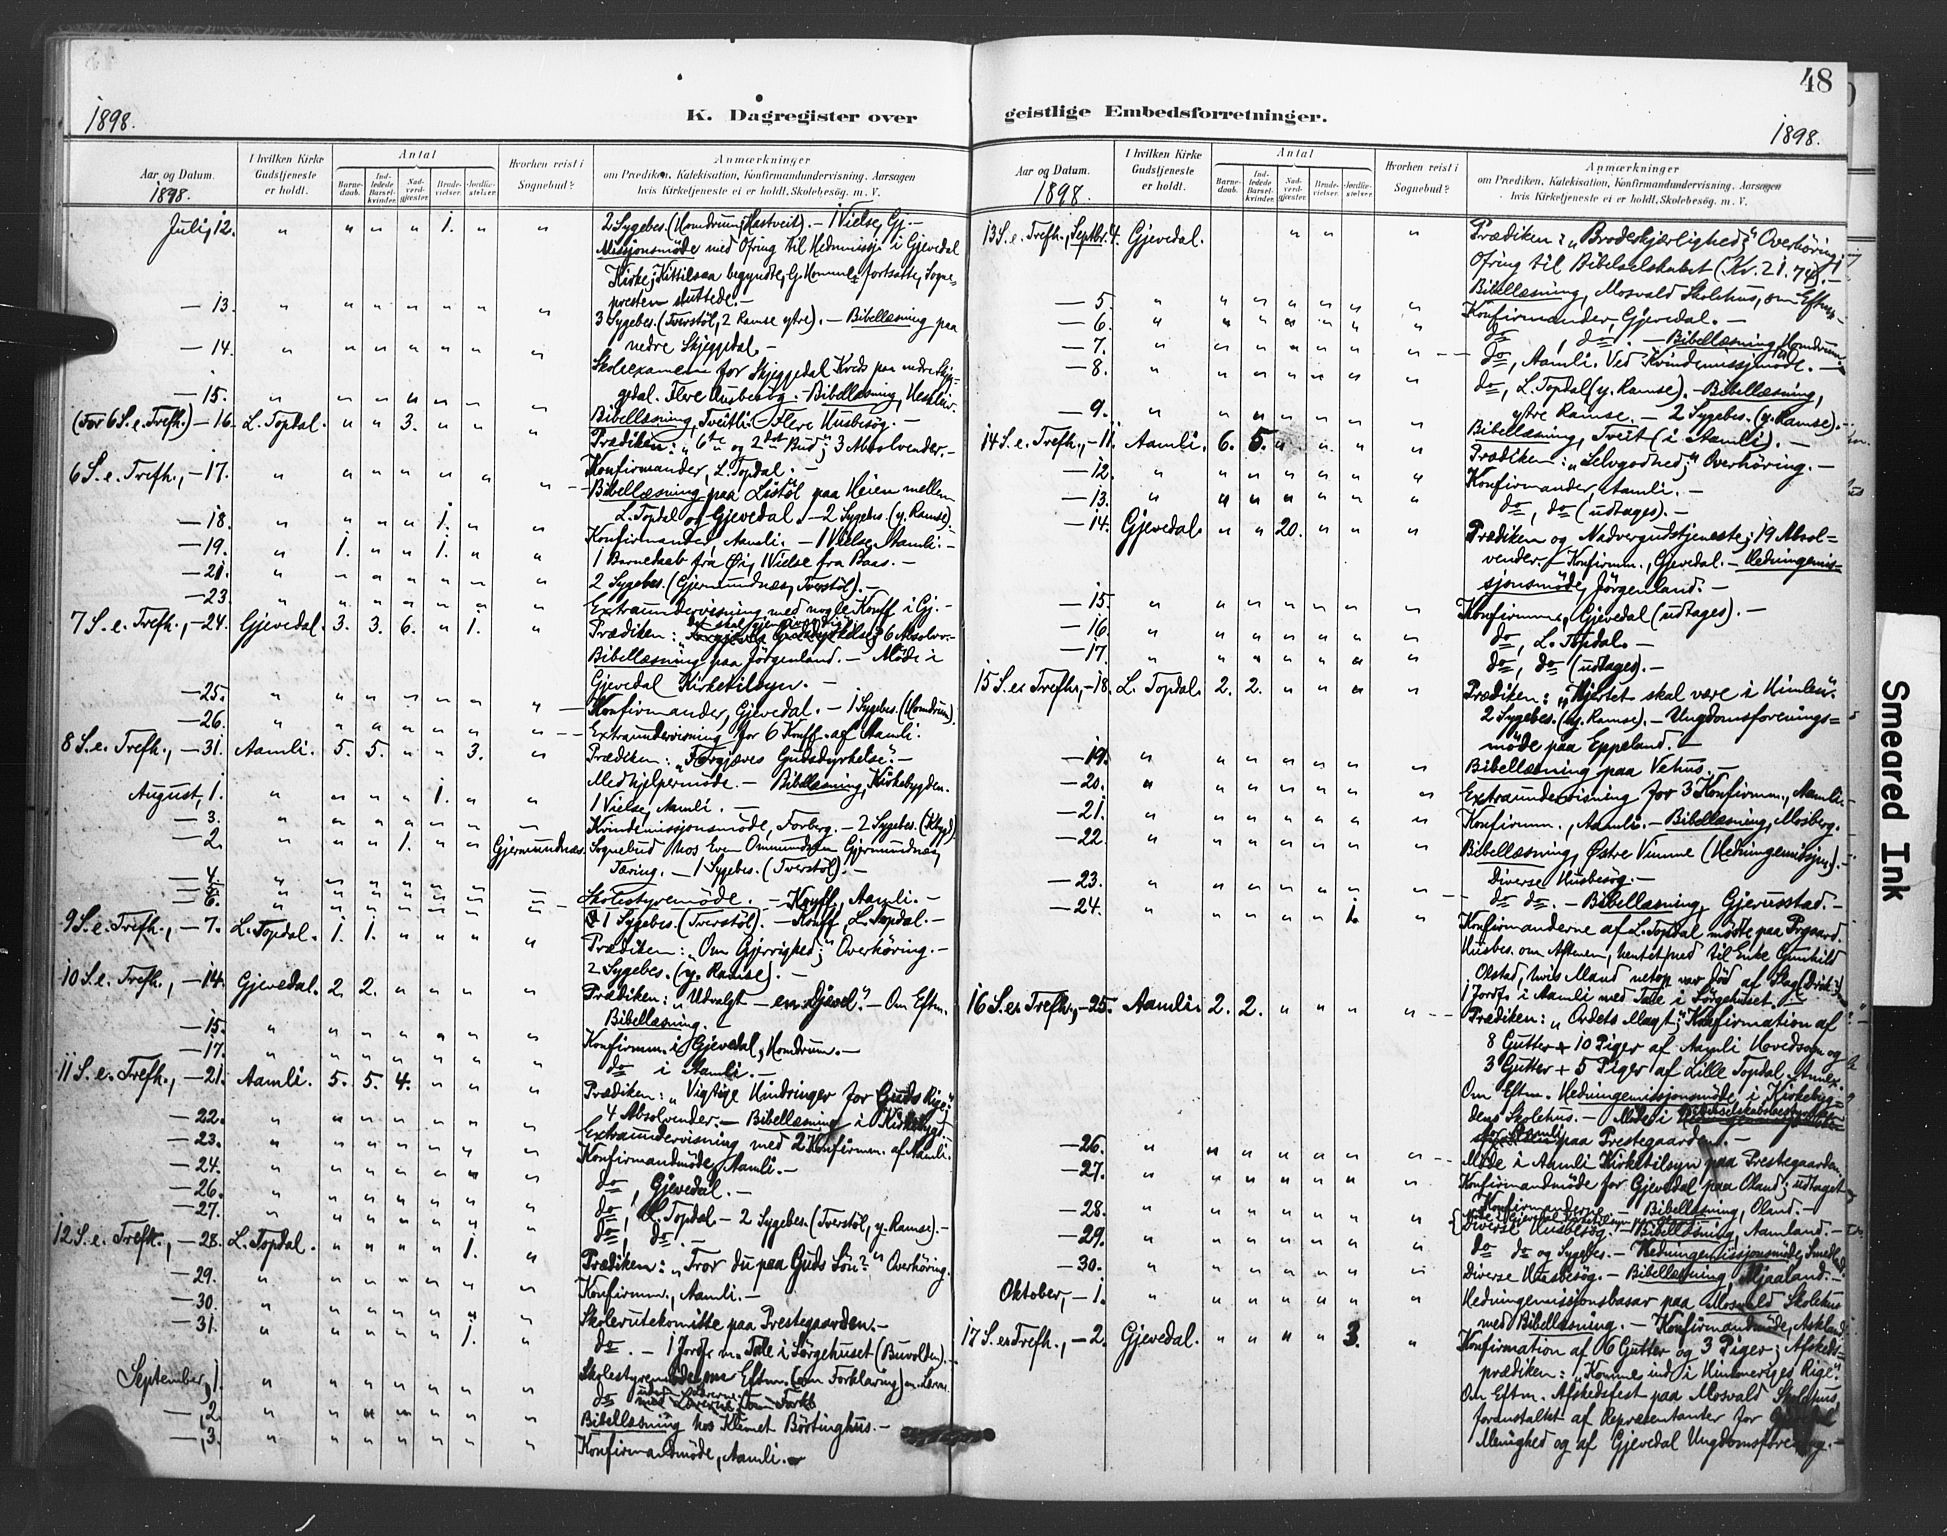 48
1898.
K. Dagregister over
geistlige Embedsforretninger.
1898.
Aar og Datum.
1898.
I hvilken Kirke Gudstjeneste er holdt.
Antal
Barnedaab.
Indledede Barselkvinder.
Nadverdgjester.
Brudevielser.
Jordfæstelser.
Hvorhen reist i Sognebud?
Anmærkninger
om Prædiken, Katekisation, Konfirmandundervisning, Aarsagen
hvis Kirketjeneste ei er holdt, Skolebesøg. m. V.
Juli, 12. " " " " 1. " " 2 Sygebes. (Homdrum, Hastveit). – 1 Vielse, Gj. –
Missjonsmöde med Ofring til Hedn.missj. i Gjevedal
Kirke; Kittilsaa begyndte, G. Homme fortsatte, Sogne-
presten sluttede. –
— 13. " " " " " " " 3 Sygebes. (Tverstöl, 2 Ramse ytre). – Bibellæsning paa
nedre Skjeggedal. –
— 14. " " " " " " " Skoleexamen for Skjeggedal Kreds paa nedre Skjeg-
gedal. Flere Husbesög. – Bibellæsning,
— 15. " " " " " " " Bibellæsning, Tveitli. Flere Husbesög. –
(For 6 S. e. Trefh.) – 16. L. Topdal. " " 3. " " " Prædiken: „6te og 2det Bud"; 3 Absolvender. –
6 S. e. Trefh., – 17. " " " " " " " Konfirmander, L. Topdal. –
Bibellæsning paa Listöl paa Heien mellem
L. Topdal og Gjevedal. – 2 Sygebes. (y. Ramse). –
— 18. " " " " 1. " " Konfirmander, Aamli. – 1 Vielse, Aamli. –
— 19. " 1. " " 1. " " 1 Barnedaab fra Öi, 1 Vielse fra Baas. –
— 21. " " " " " " " 2 Sygebes. (Gjermundnes, Tverstöl). –
— 23. " " " " " " " Extraundervisning med nogle Konff. i Gj. –
7 S. e. Trefh., – 24. Gjevedal. 3. 3. 6. " 1. " Prædiken: 6 Absolv. –
Bibellæsning paa Jörgenland. – Möde i
Gjevedal Kirketilsyn. –
— 25. " " " " " " " Konfirmander, Gjevedal. – 1 Sygebes. (Homdrum).
— 26. " " " " " " " Extraundervisning for 6 Konff. af Aamli.
8 S. e. Trefh., – 31. Aamli. 5. 5. " " 3. " Prædiken: „Forgjæves Gudsdyrkelse". –
Medhjelpermöde. – Bibellæsning, Kirkebygden.
August, 1. " " " " 1. " " 1 Vielse, Aamli. –
— 3. " " " " " " " Kvindemissjonsmöde, Forberg. – 2 Sygebes.
— 2. " " " 1. " " Gjermundnæs. Sognebud hos Even Ommundsen Gjermundnæs,
Tæring. – 1 Sygebes. (Tverstöl). –
— 4. " " " " " " "
— 5. " " " " " " " Skolestyremöde. – Konff., Aamli. –
— 6. " " " " " " " 1 Sygebes. (Tverstöl). – Konff., L. Topdal. –
9 S. e. Trefh., – 7. L. Topdal. 1. 1. " " " " Prædiken: „Om Gjerrighed;" Overhöring. –
2 Sygebes. (y. Ramse). –
10 S. e. Trefh., – 14. Gjevedal. 2. 2. " " " " Prædiken: „Udvalgt – en Djevel". – Om Eftm.
Bibellæsning. –
— 15. " " " " " " " Konfirmm. i Gjevedal, Homdrum. –
— 17. " " " " " " " do i Aamli. –
11 S. e. Trefh., – 21. Aamli. 5. 5. 4. " " " Prædiken: „Vigtige Hindringer for Guds Rige;"
4 Absolvender. – Bibellæsning i Kirkebygd.
— 22. " " " " " " " Extraundervisning med 2 Konfirmm. af Aamli.
— 23. " " " " " " " Konfirmandmöde, Aamli. –
— 24. " " " " " " " do, Gjevedal. –
— 26. " " " " " " " do, L. Topdal – 2 Sygebes. (Tverstöl, y. Ramse). –
— 27. " " " " " " " do, do. –
12 S. e. Trefh., – 28. L. Topdal. " " " " 1. " Prædiken: „Tror du paa Guds Sön?" Overhöring.
— 29. " " " " " " " Konfirmm., Aamli. –
— 30. " " " " " " " Skolerutekomitte paa Prestegaarden. –
— 31. " " " " " 1. " do. – 1 Jordf. m. Tale i Sørgehuset (Buvolden). –
September, 1. " " " " " " " Skolestyremöde, om Eftm. (om Forklaring)
do
— 2. " " " " " " " Bibellæsning hos Klemet Börtinghus. –
— 3. " " " " " " " Konfirmandmöde, Aamli. –
Aar og Datum.
1898.
I hvilken Kirke Gudstjeneste er holdt.
Antal
Barnedaab.
Indledede Barselkvinder.
Nadverdgjester.
Brudevielser.
Jordfæstelser.
Hvorhen reist i Sognebud?
Anmærkninger
om Prædiken, Katekisation, Konfirmandundervisning, Aarsagen
hvis Kirketjeneste ei er holdt, Skolebesøg. m. V.
13 S. e. Trefh., Septbr. 4. Gjevedal. " " " " Prædiken: „Broderkjærlighed;" Overhöring;
Ofring til Bibelselskabet (Kr. 21.74). –
— 5. " " " " " " " Bibellæsning, Mosvald Skolehus, om Eftm. –
— 6. " " " " " " " Konfirmander, Gjevedal. –
— 7. " " " " " " " do, do. – Bibellæsning, Homdrum.
— 8. " " " " " " " do, Aamli. Ved Kvindemissjmöde. –
do, L. Topdal (y. Ramse). – Bibellæsning,
ytre Ramse. – 2 Sygebes. (y. Ramse). –
— 9. " " " " " " " Bibellæsning, Tveit (i Aamli). –
14 S. e. Trefh., – 11. Aamli. 6. 5. " " " " Prædiken: „Selvgodhed;" Overhöring. –
— 12. " " " " " " " Konfirmander, Aamli. –
— 13. " " " " " " " do, do (udtages). –
— 14. Gjevedal. " " 20. " " " Prædiken og Nadvergudstjeneste; 19 Absol=
vender. – Konfirmm., Gjevedal. – Hedningemis-
sjonsmöde, Jörgenland. –
— 15. " " " " " " " Konfirmm., Gjevedal (udtages). –
— 16. " " " " " " " do, L. Topdal. –
— 17. " " " " " " " do, do (udtages). –
15 S. e. Trefh., – 18. L. Topdal. 2. 2. " " " " Prædiken: „Hjertet skal være i Himlen".
2 Sygebes. (y. Ramse). – Ungdomsforenings=
möde paa Eppeland. –
— 19. " " " " " " " Bibellæsning paa Vehus. –
— 20. " " " " " " " Extraundervisning for 3 Konfirmm., Aamli. –
— 21. " " " " " " " Konfirmm., Aamli. – Bibellæsning, Mosberg. –
— 22. " " " " " " " Bibellæsning, Östre Vimme (Hedningemissjon). –
Diverse Husbesög. –
— 23. " " " " " " " do do. – Bibellæsning, Gjerusstad. –
— 24. " " " " " 1. " Konfirmanderne af L. Topdal mödte paa Prgaard.
Husbes. om Aftenen, hentet ned til Enke Gunhild
Olstad, hvis Mand netop var död af Slag
1 Jordf. i Aamli med Tale i Sörgehuset. –
16 S. e. Trefh., – 25. Aamli. 2. 2. " " " " Prædiken: „Ordets Magt;" Konfirmation af
8 Gutter + 10 Piger af Aamli Hovedsogn og
3 Gutter + 5 Piger af Lille Topdal Annex.
Om Eftm. Hedningemissjonsmöde i Kirkebyg=
dens Skolehus. – Möde i
paa Prestegaarden. –
— 26. " " " " " " " Möde i Aamli Kirketilsyn paa Prestegaarden.
— 27. " " " " " " " Konfirmandmöde for Gjevedal paa Oland; udtaget
Konfirmanderne. – Bibellæsning, Oland. –
— 28. " " " " " " " Diverse Husbesög. – Bibellæsning, Aamland. –
— 29. " " " " " " " do do og Sygebes. – Hedningemissjonsmöde, Smedl
— 30. " " " " " " " Diverse Husbesög. – Bibellæsning, Mjaaland. –
Oktober, – 1. " " " " " " " Hedningemissjonsbasar paa Mosvald Skolehus
med Bibellæsning. – Konfirmandmöde, Askland.
17 S. e. Trefh., – 2. Gjevedal. " " " " 3. " Konfirmation af 6 Gutter og 3 Piger; Afskeds-
prædiken: „Kommes ind i Himmeriges Rige".
Om Eftm. Afskedsfest paa Mosvald Skolehus,
foranstaltet af Repræsentanter for Gjevedal
Menighed og af Gjevedal Ungdomsforening. –
Smeared Ink